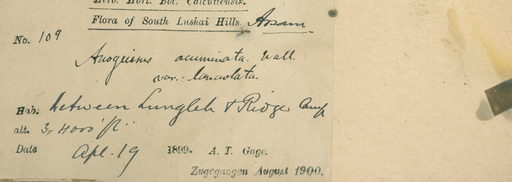 Herb. Hort. Bot. Calcuttensis.
Flora of South Lushai Hills. Assam
No. 109
Anogeissus acuminata Wall.
var. lanceolata.
Hab. between Lungleh & Ridge Camp
alt. 3/4000 ft
Date Apl. 19 1899. A. T. Gage.
Zugegangen August 1900.